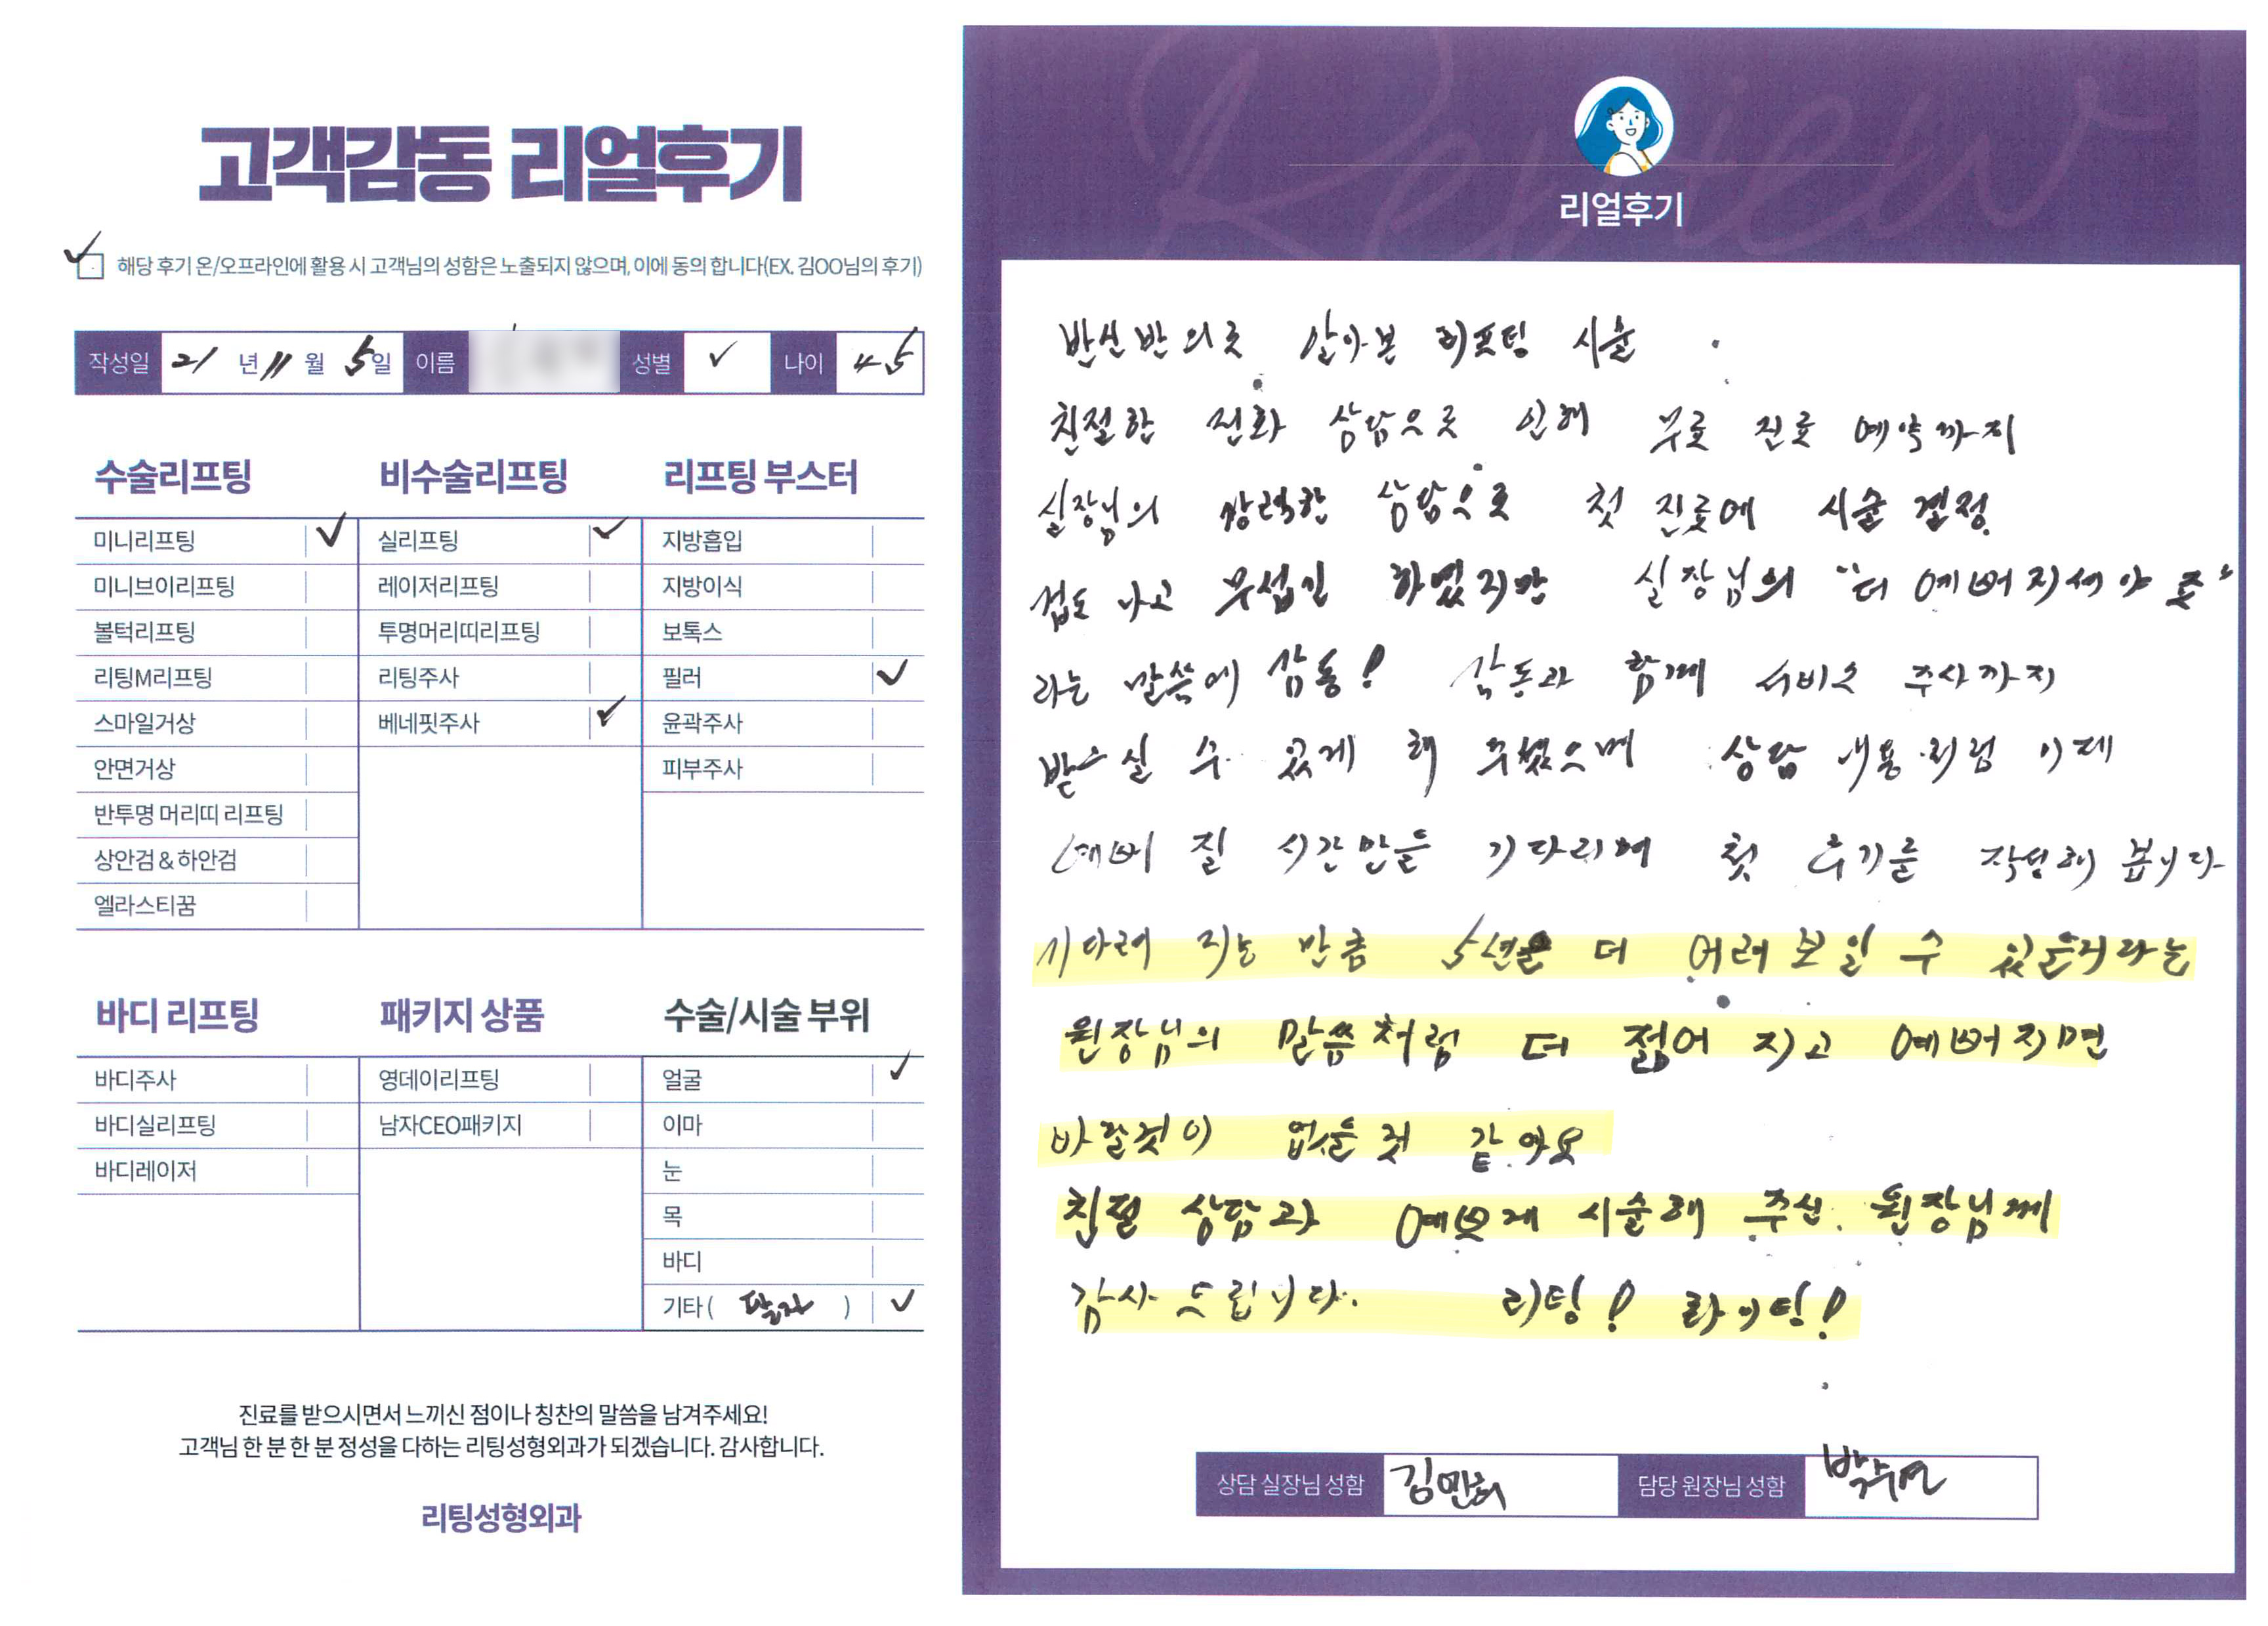 고객감동 리얼후기
해당 후기 온/오프라인에 활용 시 고객님의 성함은 노출되지 않으며, 이에 동의 합니다(EX. 김OO님의 후기)
작성일 21 년 11 월 5일 이름 성별 ✓ 나이 45
수술리프팅
미니리프팅 ✓
미니브이리프팅
볼턱리프팅
리팅M리프팅
스마일거상
안면거상
반투명 머리띠 리프팅
상안검 & 하안검
엘라스티꿈
비수술리프팅
실리프팅 ✓
레이저리프팅
투명머리띠리프팅
리팅주사
베네핏주사 ✓
리프팅 부스터
지방흡입
지방이식
보톡스
필러 ✓
윤곽주사
피부주사
바디 리프팅
바디주사
바디실리프팅
바디레이저
패키지 상품
영데이리프팅
남자CEO패키지
수술/시술 부위
얼굴 ✓
이마
눈
목
바디
기타 ( 팔자 ) ✓
진료를 받으시면서 느끼신 점이나 칭찬의 말씀을 남겨주세요!
고객님 한 분 한 분 정성을 다하는 리팅성형외과가 되겠습니다. 감사합니다.
리팅성형외과
Review
리얼후기
반신반의로 알아본 리프팅 시술
친절한 전화 상담으로 인해 무료 진료 예약까지
실장님의 상담으로 첫 진료에 시술 결정
겁도 나고 무섭긴 하였지만 실장님의 "더 예뻐지셔야죠"
라는 말씀에 감동! 감동과 함께 서비스 주사까지
받으실 수 있게 해 주셨으며 상담 내용처럼 이제
예뻐 질 시간만을 기다리며 첫 후기를 작성해 봅니다
기다려 지는 만큼 5년은 더 어려 보일 수 있을거라는
원장님의 말씀처럼 더 젊어 지고 예뻐지면
바랄것이 없을 것 같아요
친절 상담과 예쁘게 시술해 주신 원장님께
감사 드립니다. 리팅! 라이팅!
상담 실장님 성함 담당 원장님 성함